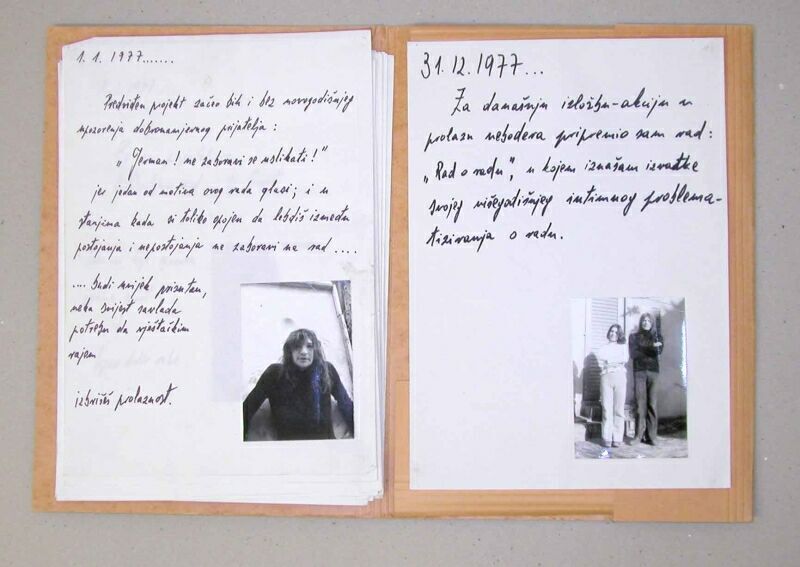 1. 1. 1977.......
Predviđen projekt začeo bih i bez novogodišnjeg
upozorenja dobronamjernog prijatelja :
„ Jerman ! ne zaboravi se uslikati ! "
jer jedan od motiva ovog rada glasi ; i u
stanjima kada si toliko opojen da lebdiš između
postojanja i nepostojanja ne zaboravi na rad ....
.... budi uvijek prisutan,
neka svijest savlada
potrebu da vještačkim
rajem
izbrišeš prolaznost.
31. 12. 1977...
Za današnju izložbu-akciju u
prolazu nebodera pripremio sam rad :
„ Rad o radu ", u kojem iznašam izvatke
svojeg višegodišnjeg intimnog problema-
tiziranja o radu.